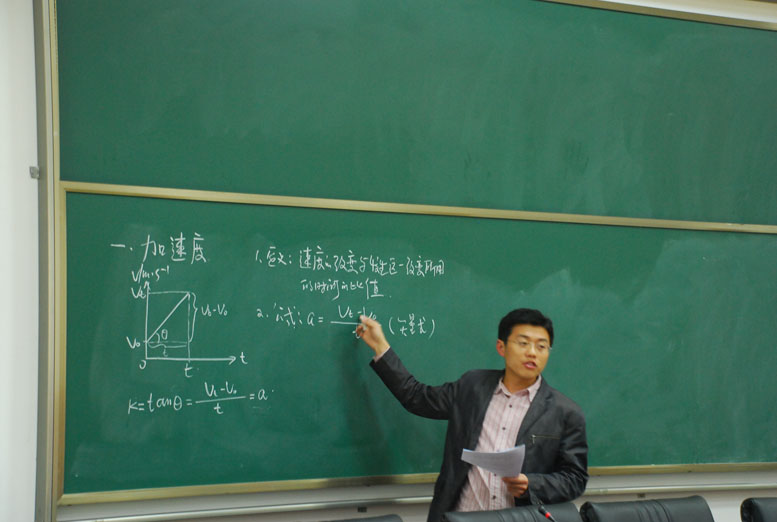 一. 加速度
V/m·s⁻¹
Vt
V₀
θ
t
0
t
t
Vt-V₀
K=tanθ= (Vt-V₀)/t =a
1. 定义: 速度的改变与发生这一改变所用
的时间的比值.
2. 公式: a= (Vt-V₀)/t (矢量式)